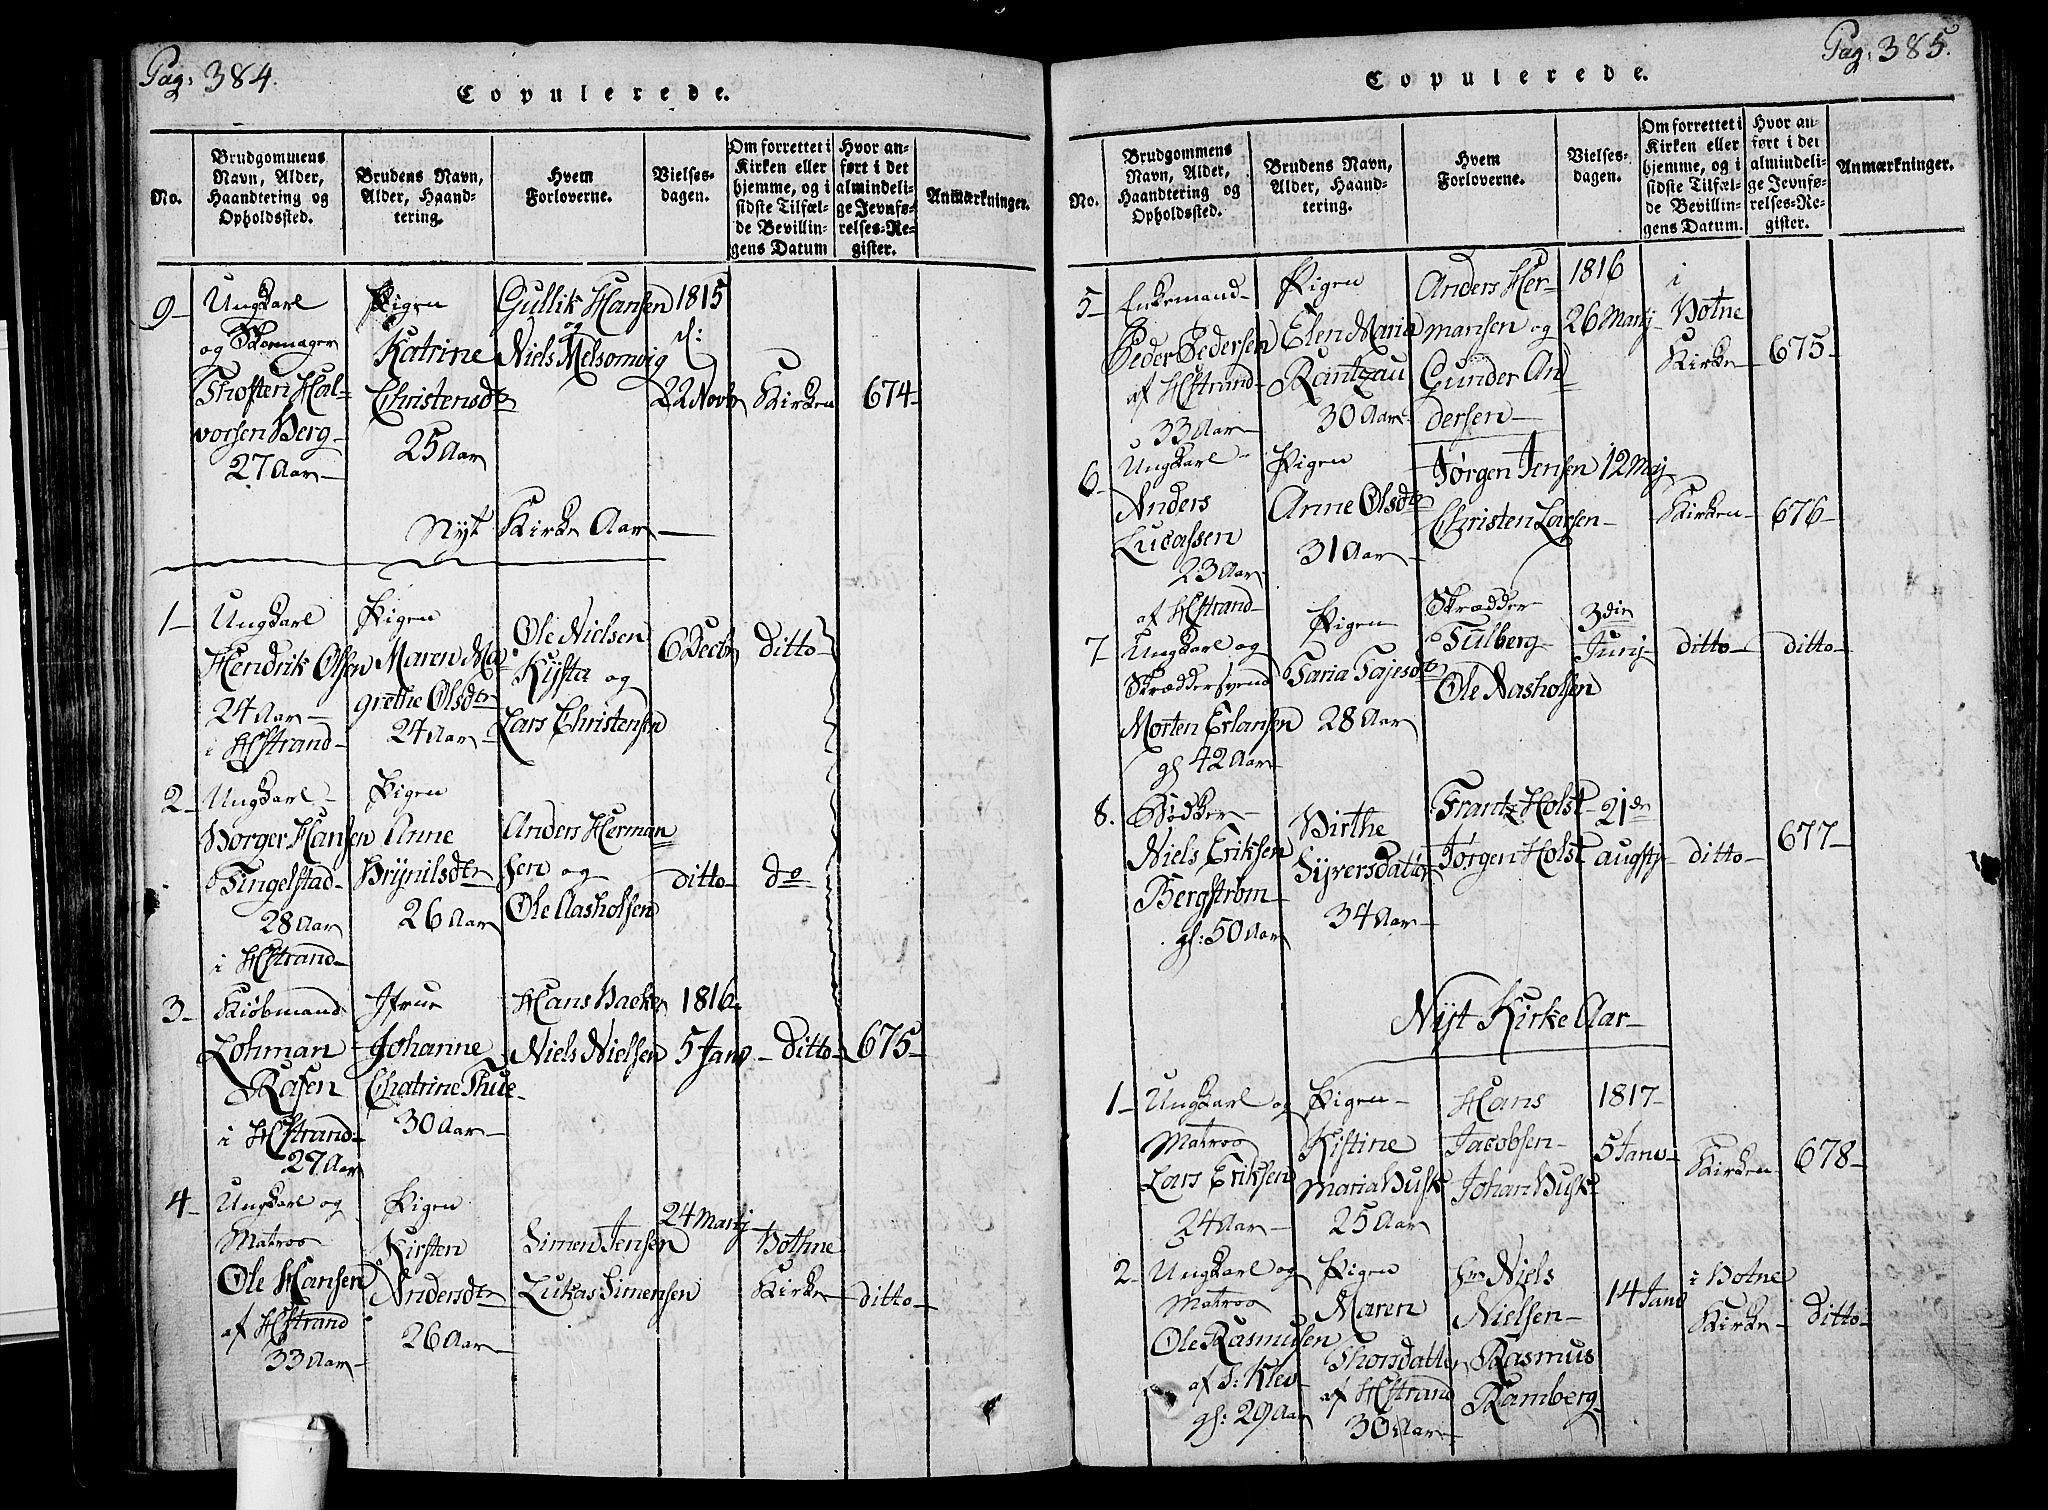 Pag: 384.
Copulerede.
No.
Brudgommens
Navn, Alder,
Haandtering og
Opholdssted.
Brudens Navn,
Alder, Haand-
tering.
Hvem
Forloverne.
Vielses-
dagen.
Om forrettet i
Kirken eller
hjemme, og i
sidste Tilfæl-
de Bevillin-
gens Datum
Hvor an-
ført i det
almindeli-
ge Jevnfø-
relses-Re-
gister.
Anmærkninger.
9
Ungkarl
og Skomager
Thosten Hal-
vorsen Berg
27 Aar
Pigen
Katrine
Christensdtr
25 Aar
Gullik Hansen
og
Niels Melsomvig
1815
d:
22 Novb
Kirken
674
Nyt Kirke Aar
1
Ungkarl
Hendrik Olsen
24 Aar
i HStrand
Pigen
Maren Ma
grethe Olsdtr
24 Aar
Ole Nielsen
Kysta og
Lars Christensen
6 Decbr
ditto
2
Ungkarl
Borger Hansen
Tingelstad
28 Aar
i HStrand
Pigen
Anne
Brynilsdtr
26 Aar
Anders Herman
sen og
Ole Aasholsen
ditto
do
3
Kiøbmand
Lohman
Rasen
i HStrand
27 Aar
Jfrue
Johanne
Chatrine Thue
30 Aar
Hans Backer
Niels Nielsen
1816
5 Janv
ditto
675
4
Ungkarl og
Matros
Ole Hansen
af HStrand
33 Aar
Pigen
Kirsten
Andersdtr
26 Aar
Simen Jensen
Lukas Simensen
24 Martj
Bothne
Kirke
ditto
Pag: 385.
Copulerede.
No.
Brudgommens
Navn, Alder,
Haandtering og
Opholdssted.
Brudens Navn,
Alder, Haand-
tering.
Hvem
Forloverne.
Vielses-
dagen.
Om forrettet i
Kirken eller
hjemme, og i
sidste Tilfæl-
de Bevillin-
gens Datum.
Hvor an-
ført i det
almindeli-
ge Jevnfø-
relses-Re-
gister.
Anmærkninger.
5
Enkemand
Peder Pedersen
af HStrand
33 Aar
Pigen
Elen Maria
Rantzau
30 Aar
Anders Her-
mansen og
Gunder An
dersen
1816
26 Martj
i
Botne
Kirke
675
6
Ungkarl
Anders
Lucassen
23 Aar
af HStrand
Pigen
Anne Olsdtr
31 Aar
Jørgen Jensen
Christen Larsen
12 Maj
Kirken
676
7
Ungkarl og
Skræddersvend
Morten Erlansen
gl 42 Aar
Pigen
Taria Tajesdtr
28 Aar
Skrædder
Tulberg
Ole Aasholsen
3die
Junj
ditto
ditto
8.
Bødker
Niels Eriksen
Bergstrøm
gl: 50 Aar
Birthe
Syversdatter
34 Aar
Frantz Holst
Jørgen Holst
21de
augstj
ditto
677
Nyt Kirke Aar
1
Ungkarl og
Matros
Lars Eriksen
24 Aar
Pigen
Kistine
Maria Busk
25 Aar
Hans
Jacobsen
Johan Busk
1817
5 Janv
Kirken
678
2
Ungkarl og
Matros
Ole Rasmusen
af S: Klev
gl: 29 Aar
Pigen
Maren
Thorsdatter
af HStrand
30 Aar
Hr Niels
Nielsen
Rasmus
Ramberg
14 Janv
i Botne
Kirke
ditto